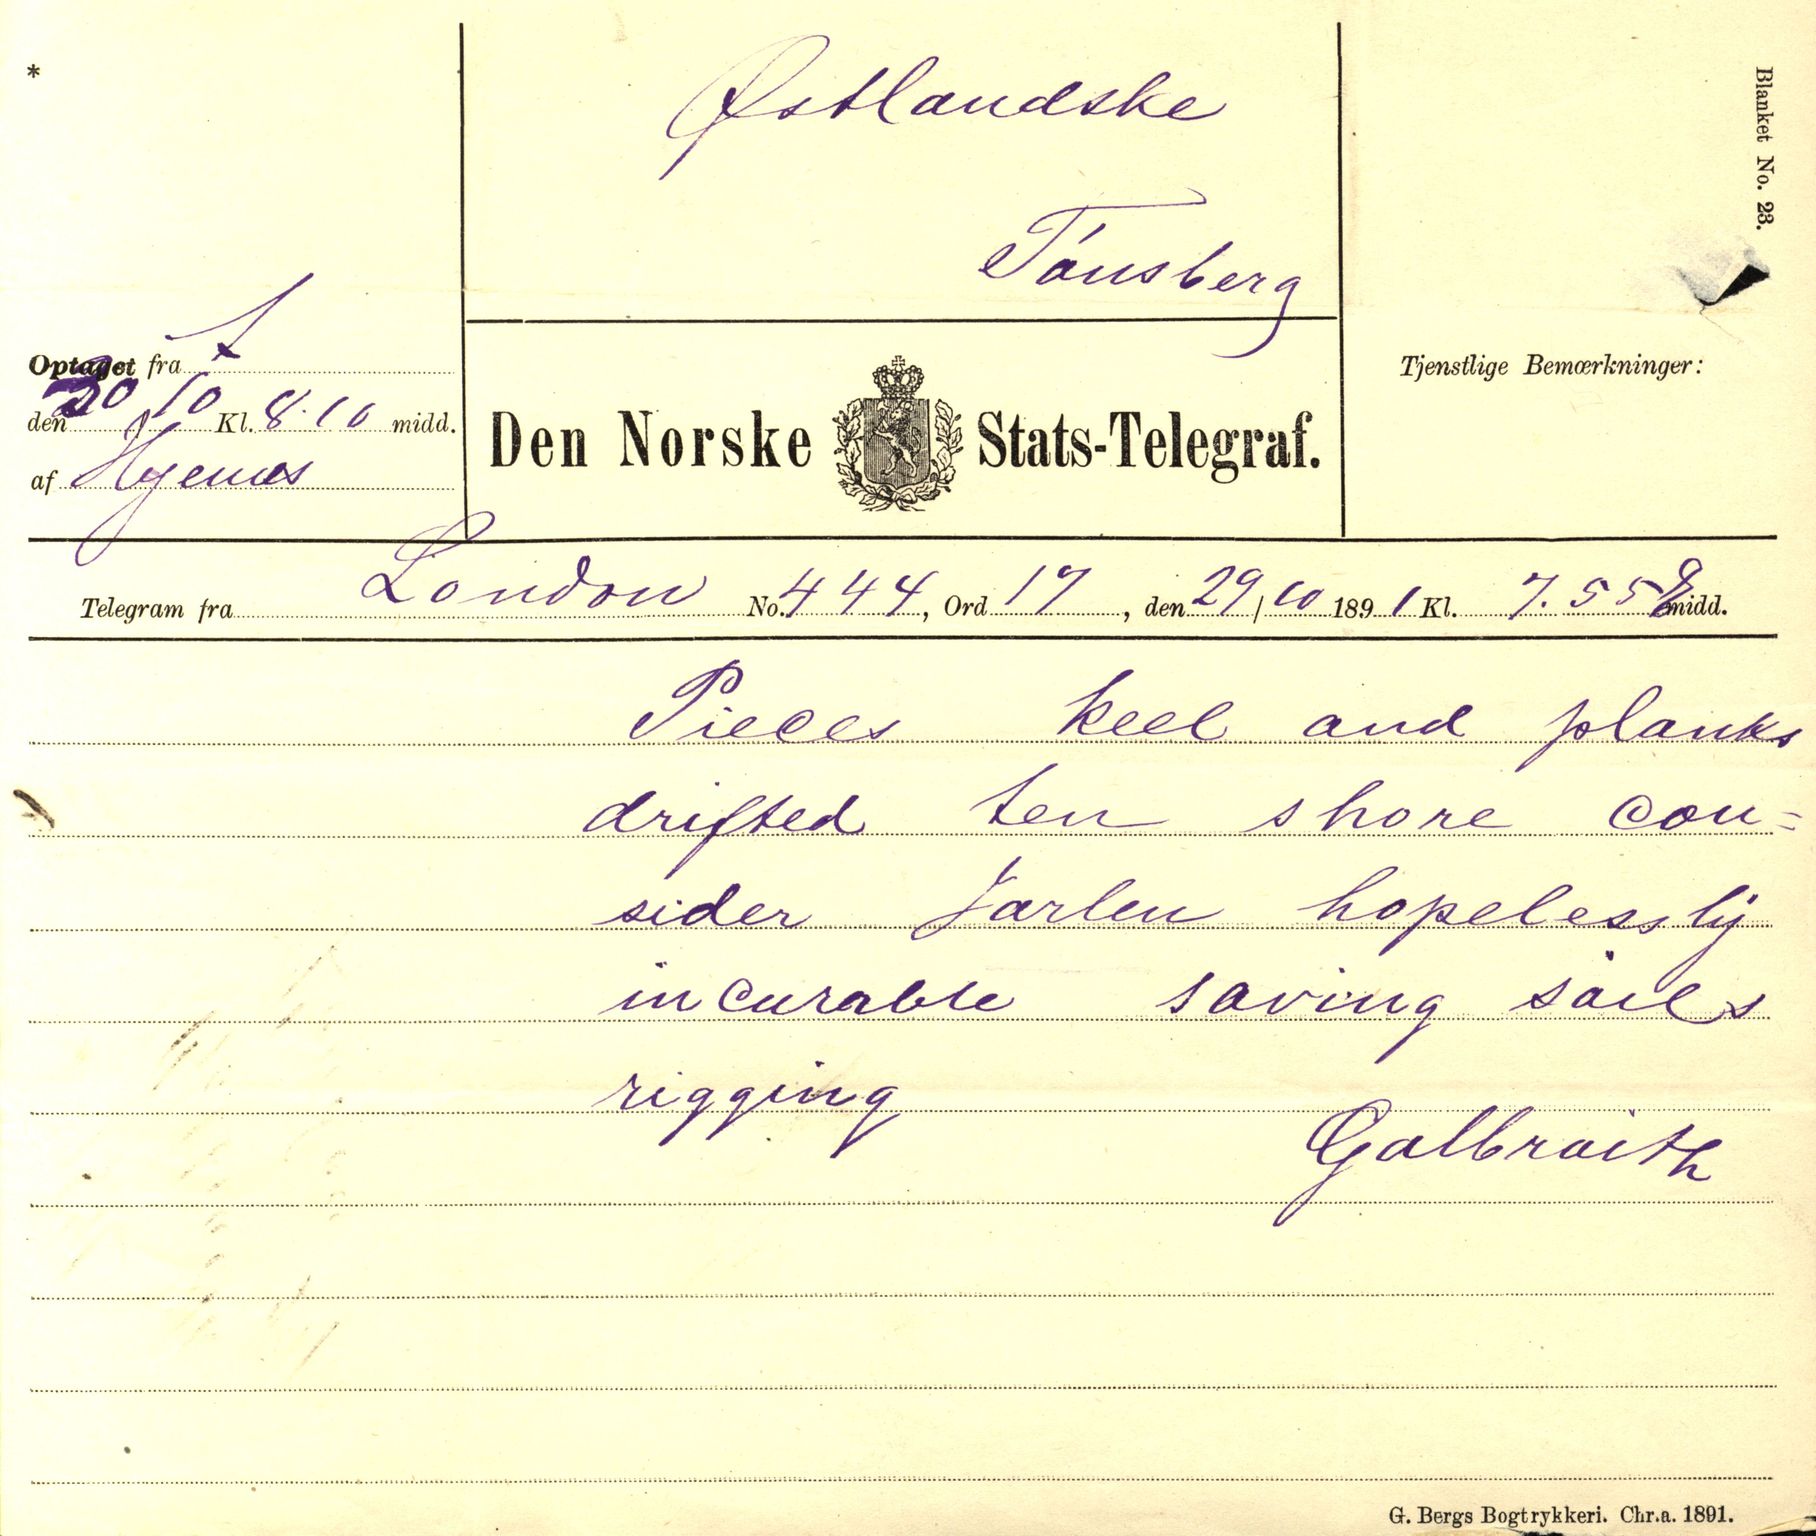 *
Blanket No. 23.
Østlandske
Tónsberg
Optaget fra
den 10 Kl. 8.10 midd.
af
Den Norske Stats-Telegraf.
Tjenstlige Bemærkninger:
Telegram fra London No. 444, Ord 17, den 29/10 1891 Kl. 7.55 midd.
Pieces keel and planks
drifted ten shore con=
sider Jarlen hopelessly
incurable saving sails
rigging
Galbraith
G. Bergs Bogtrykkeri. Chr.a. 1891.